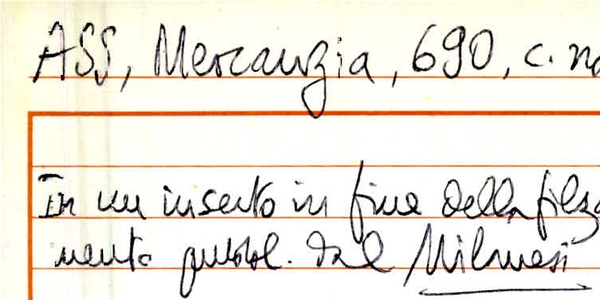 ASS, Mercanzia, 690, c. no
In un inserto in fine della filza
mento pubbl. dal Milanesi